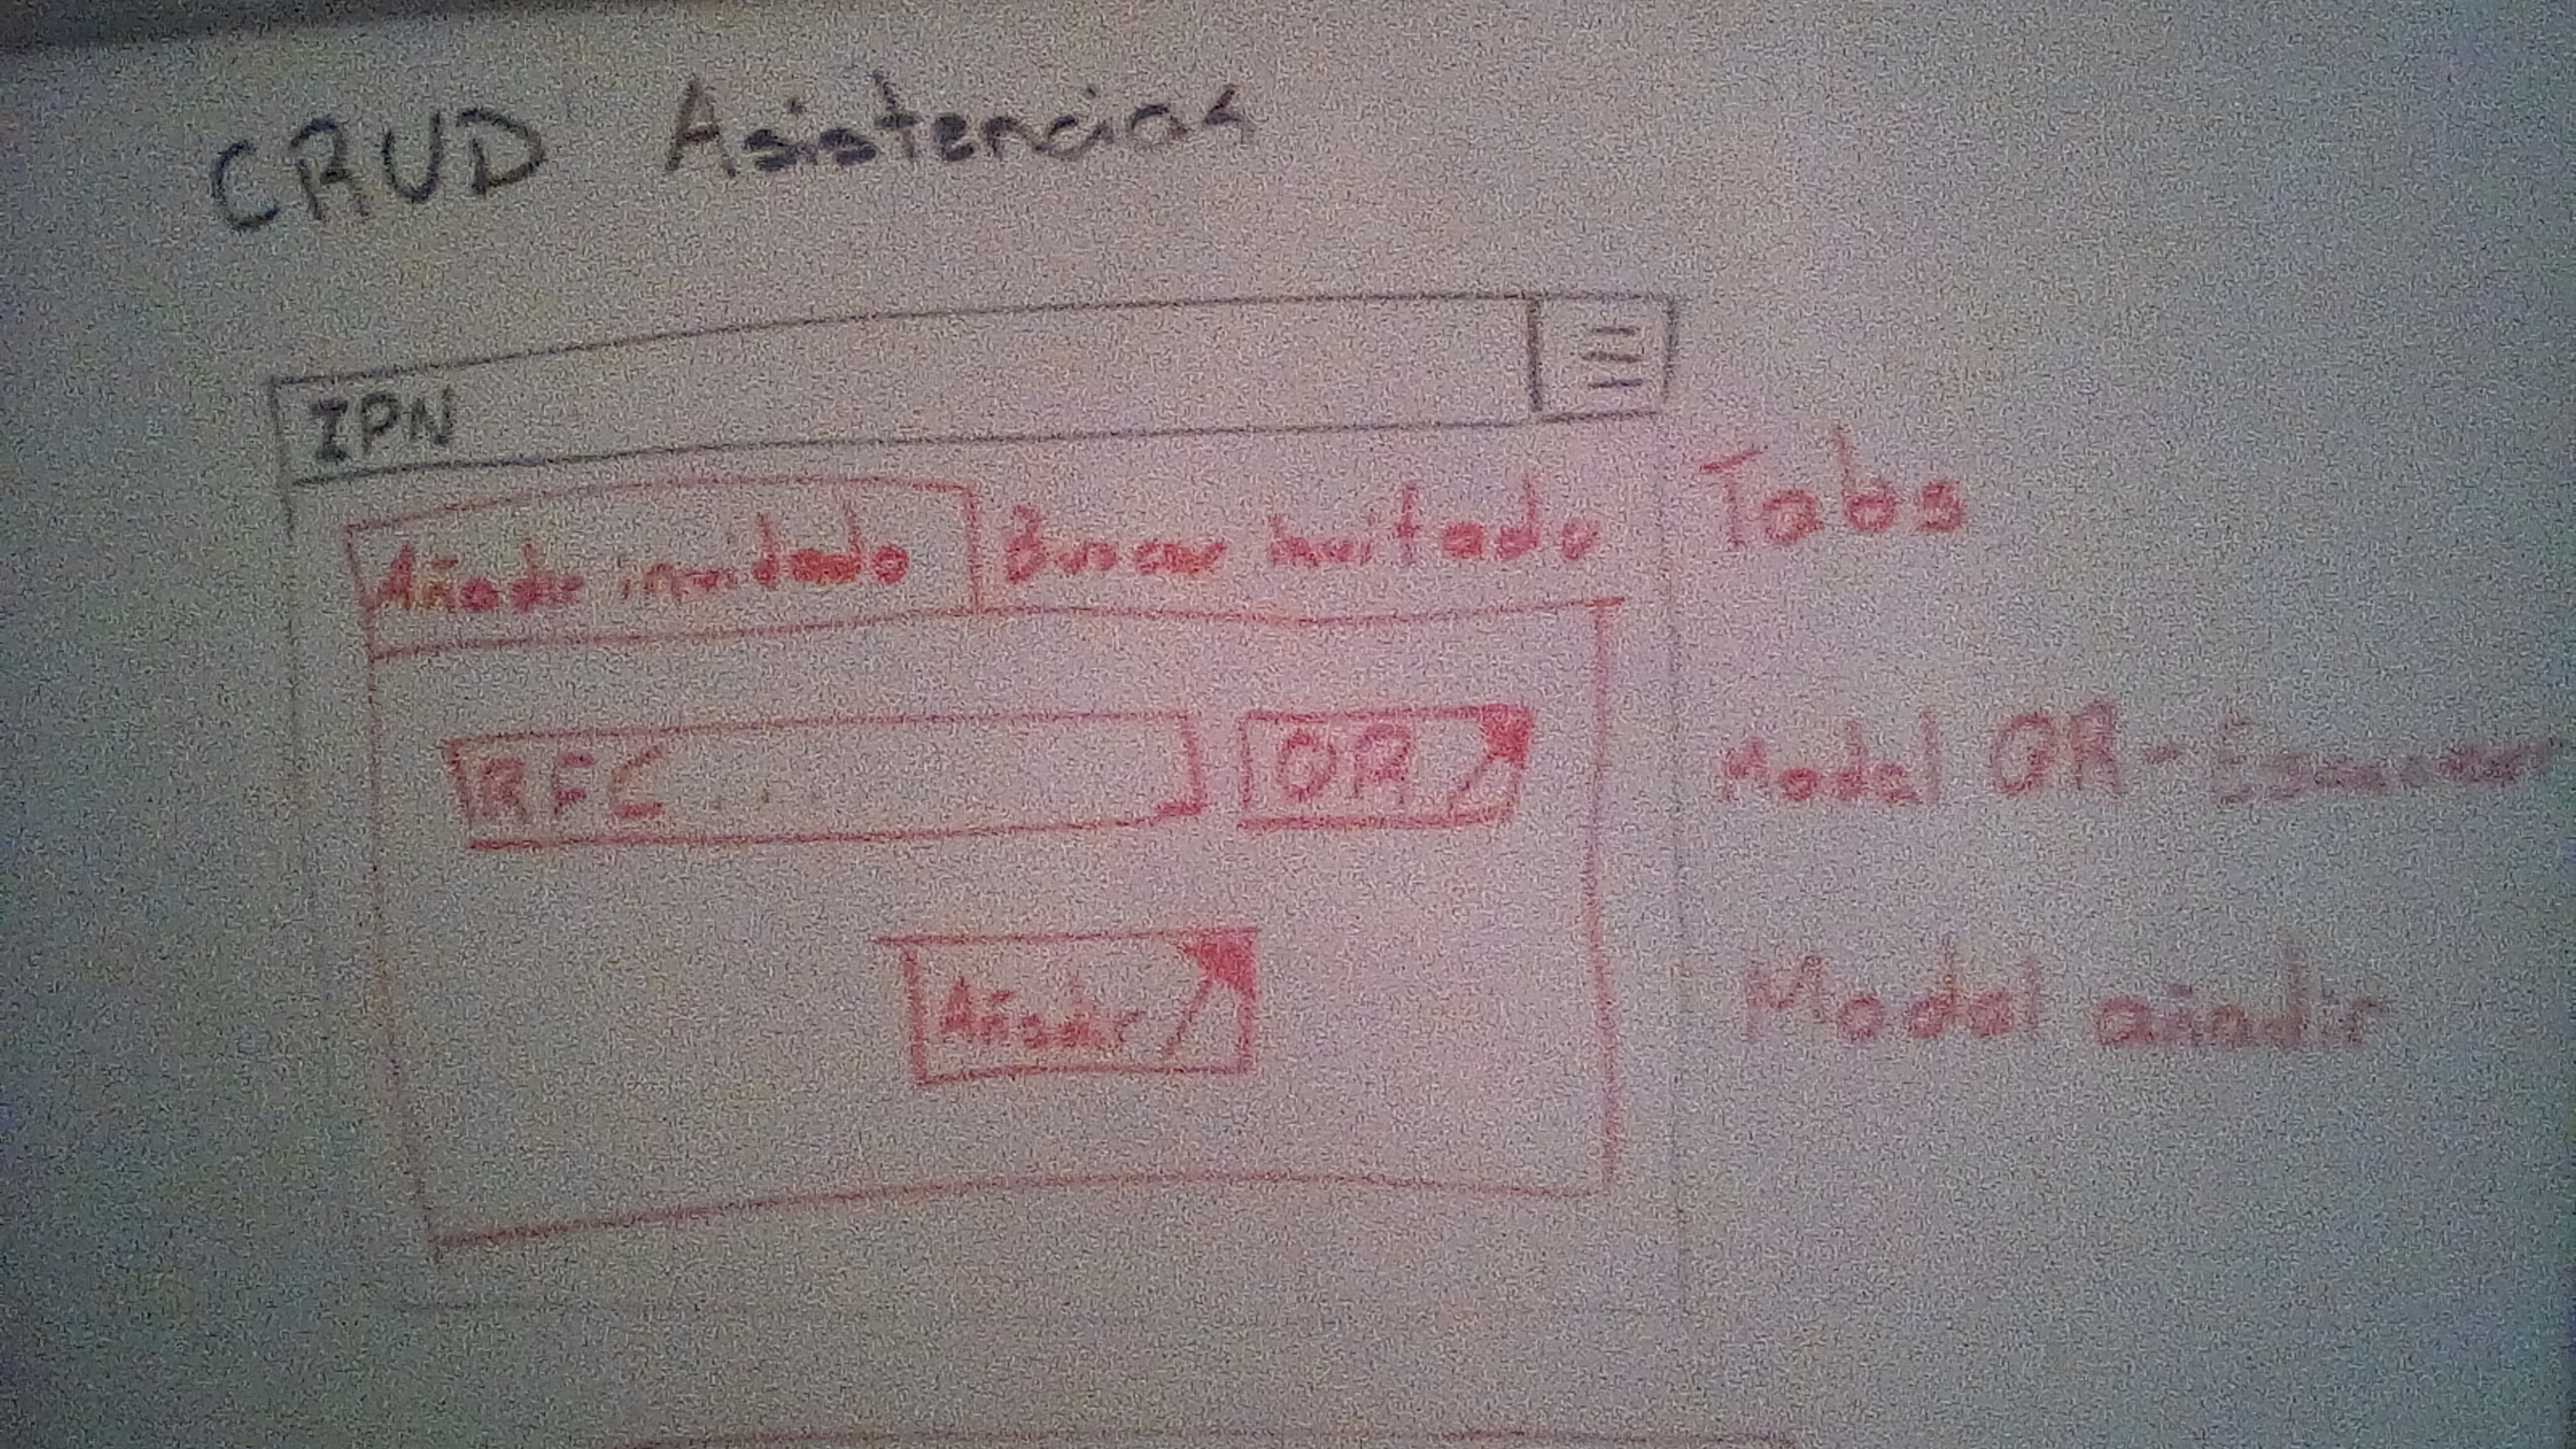 CRUD Asistencias
IPN
Añadir invitado Buscar invitado Tabs
RFC... QR Modal QR-
Añadir Modal añadir